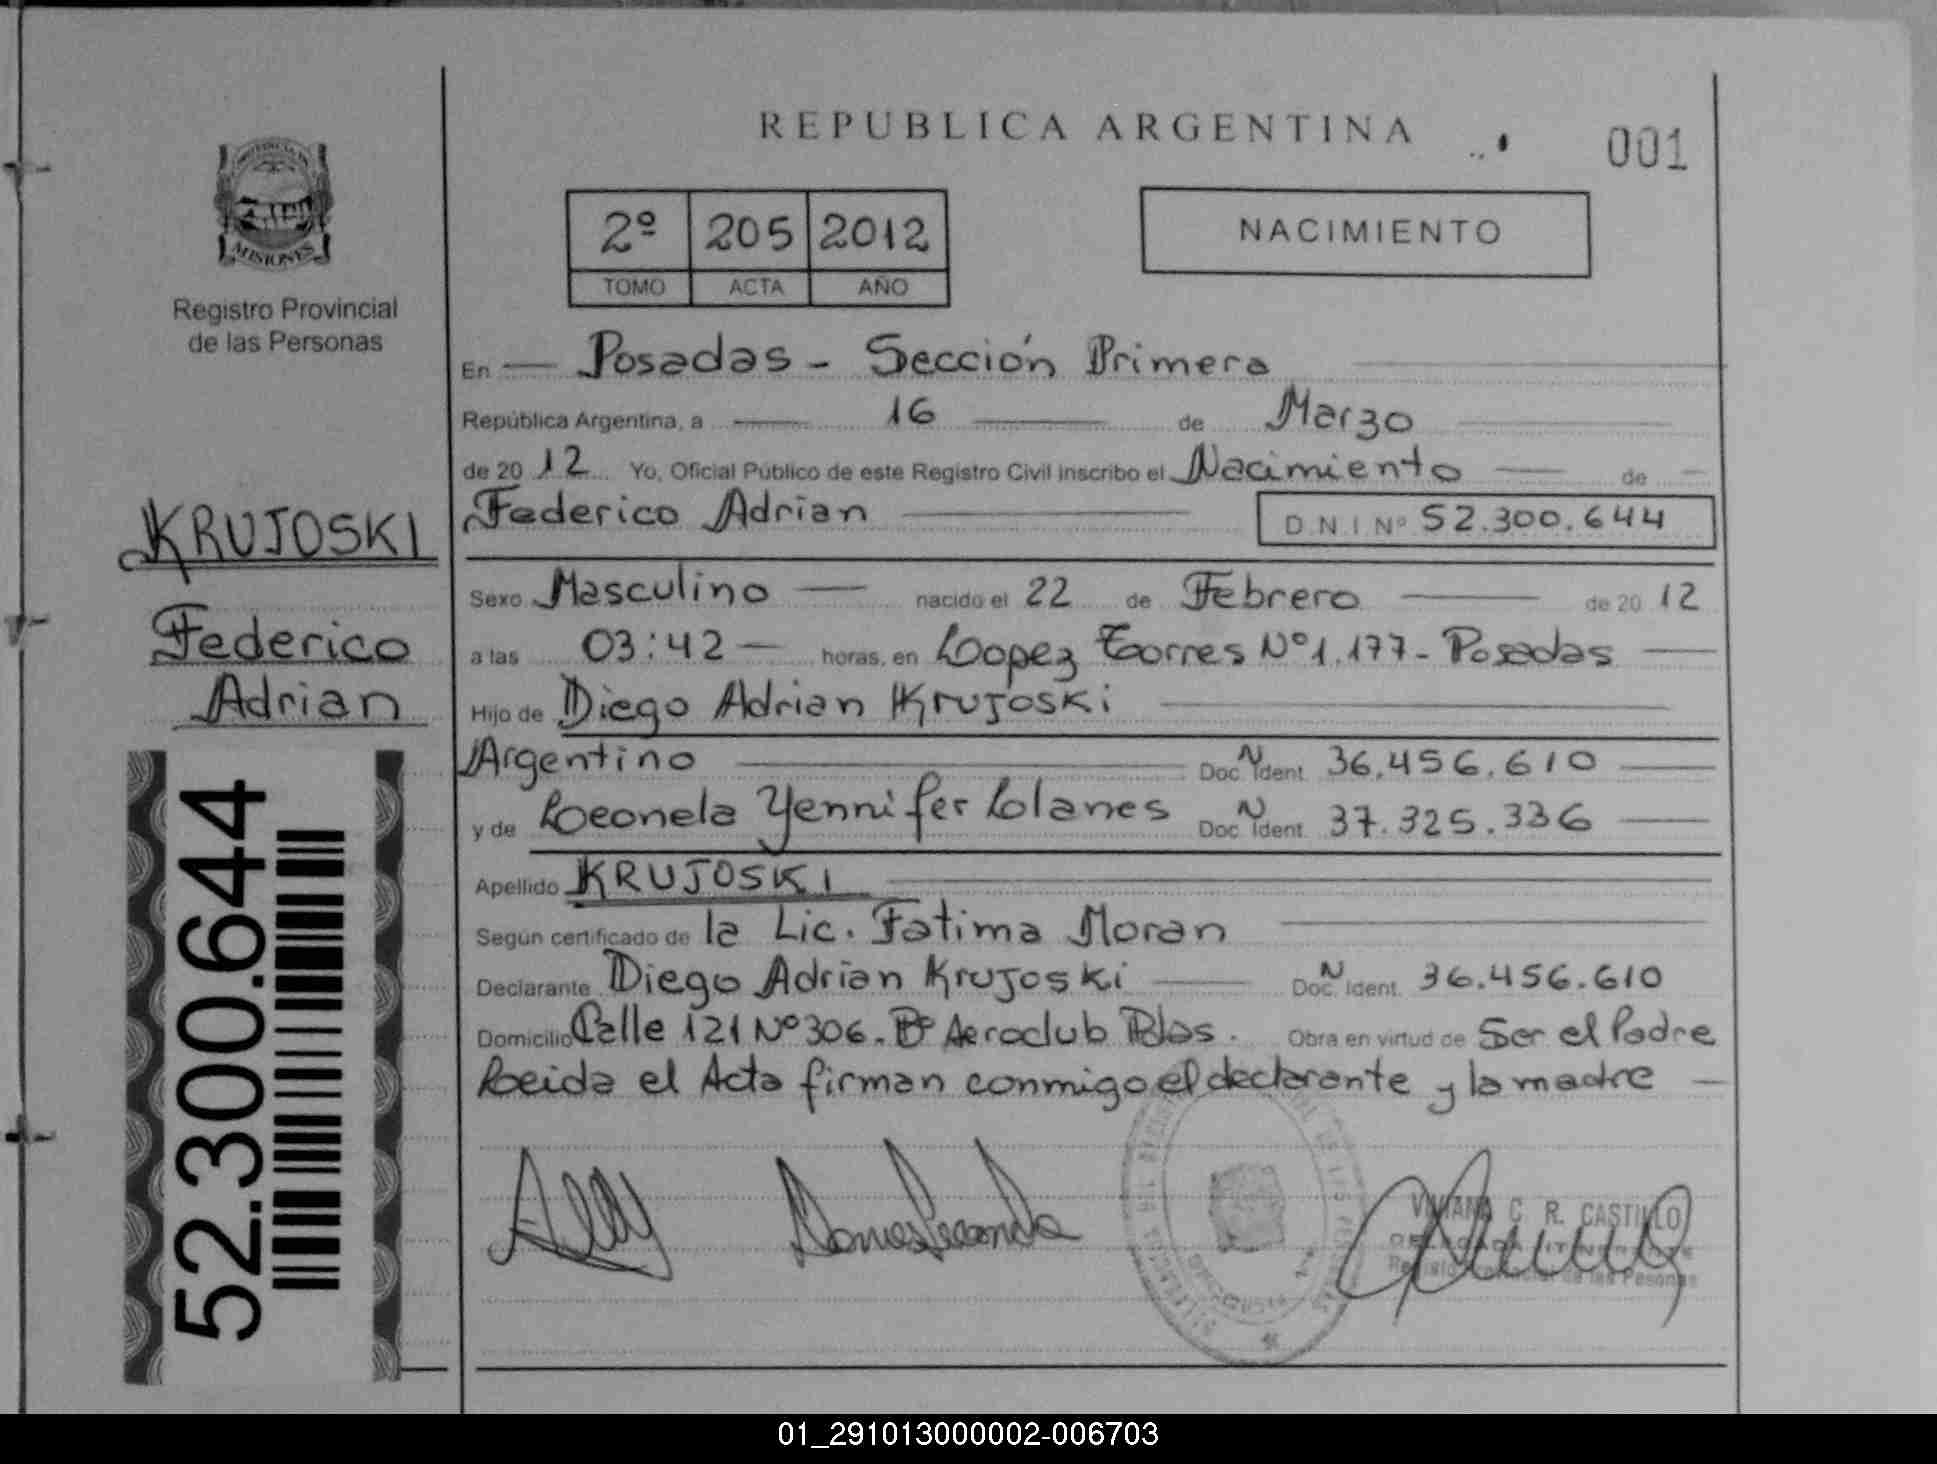 REPUBLICA ARGENTINA
001
MISIONES
Registro Provincial
de las Personas
2º 205 2012
TOMO ACTA AÑO
NACIMIENTO
En Posadas - Sección Primera
República Argentina, a 16 de Marzo
de 20 12 Yo, Oficial Público de este Registro Civil inscribo el Nacimiento de
KRUJOSKI
Federico Adrian
D.N.I. Nº 52.300.644
Sexo Masculino nacido el 22 de Febrero de 20 12
Federico
Adrian
a las 03:42 horas, en Lopez Torres Nº 1.177 - Posadas
Hijo de Diego Adrian Krujoski
Argentino Doc. N Ident. 36.456.610
y de Leonela Yennifer Llanes Doc. N Ident. 37.325.336
52.300.644
Apellido KRUJOSKI
Según certificado de la Lic. Fatima Moran
Declarante Diego Adrian Krujoski Doc. N Ident. 36.456.610
Domicilio Calle 121 Nº 306. Bº Aeroclub Pdas. Obra en virtud de Ser el Padre
Leida el Acta firman conmigo el declarante y la madre
VIVIANA C. R. CASTILLO
Registro Provincial de las Pesonas
01_291013000002-006703